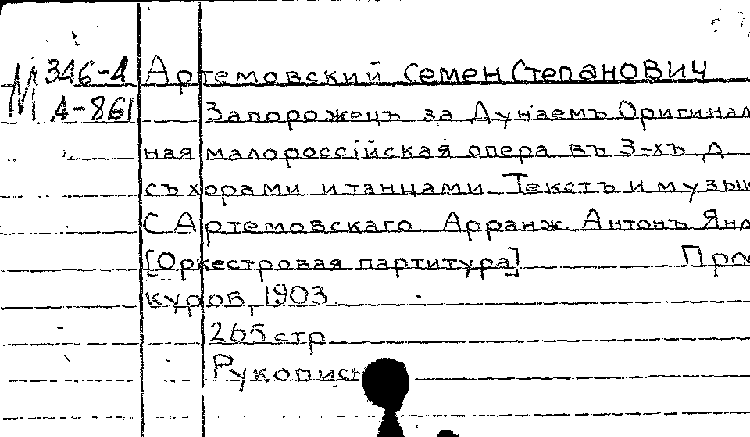 М 346-4 Артемовский Семен Степанович
А-861 Запорожецъ за Дунаемъ Оригинал
ная малороссійская опера въ 3-хъ д
съ хорами и танцами. Текстъ и музык
С Артемовскаго Арранж Антонъ Яно
[Оркестровая партитура] Про
куров, 1903
265 стр
Рукопись